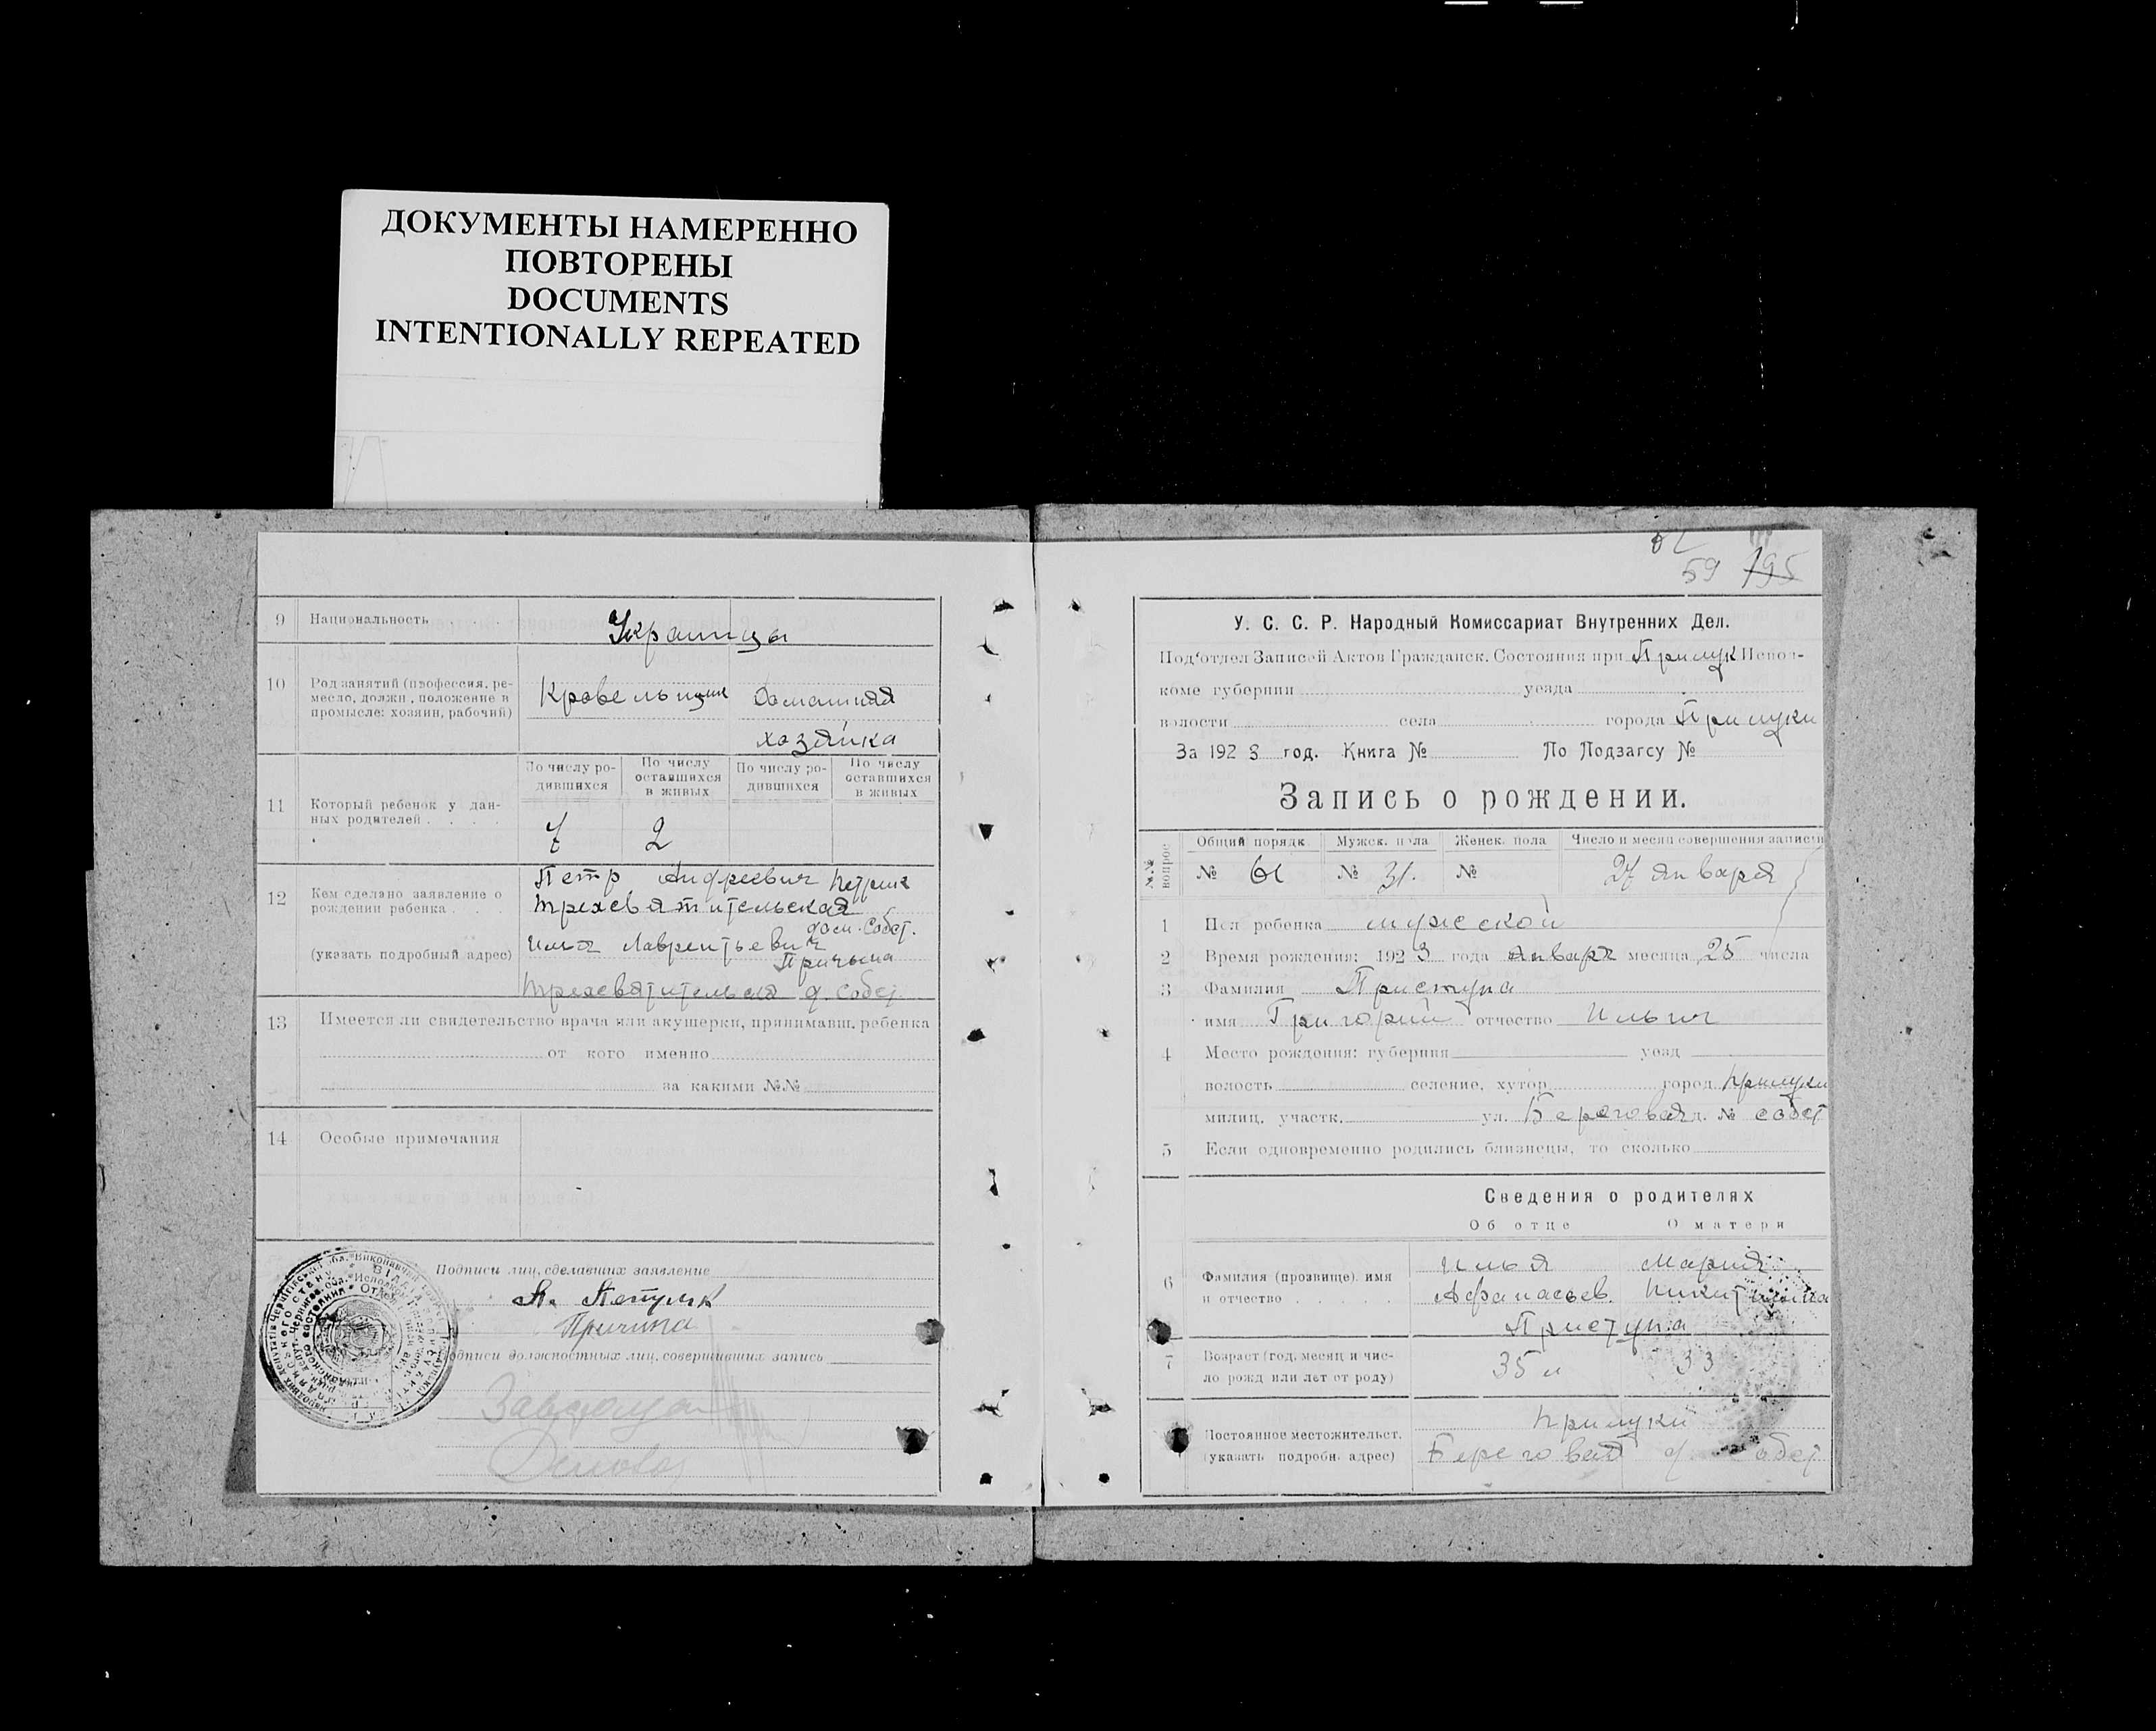 ДОКУМЕНТЫ НАМЕРЕННО
ПОВТОРЕНЫ
DOCUMENTS
INTENTIONALLY REPEATED
9 Национальность Украинцы
10 Род занятий (профессия, ре-
месло, должн., положение в
промысле: хозяин, рабочий)
Кровельщик Домашняя
хозяйка
11 Который ребенок у дан-
ных родителей
По числу ро-
дившихся
По числу
оставшихся
в живых
По числу ро-
дившихся
По числу
оставшихся
в живых
7 2
12 Кем сделано заявление о
рождении ребенка
(указать подробный адрес)
Петр Андреевич
Трехсвятительская
дом. собст.
Илья Лаврентьевич
Причина
Трехсвятительская д. собст.
13 Имеется ли свидетельство врача или акушерки, принимавш. ребенка
от кого именно
за какими №№
14 Особые примечания
Подписи лиц, сделавших заявление
Причина
Подписи должностных лиц, совершивших запись
59 195
У. С. С. Р. Народный Комиссариат Внутренних Дел.
Под'отдел Записей Актов Гражданск. Состояния при Прилук Испол-
коме губернии уезда
волости села города Прилуки
За 1923 год. Книга № По Подзагсу №
Запись о рождении.
№№ вопрос
Общий порядк. Мужск. пола Женск. пола Число и месяц совершения записи
№ 61 № 31. № 27 января
1 Пол ребенка мужской
2 Время рождения: 1923 года января месяца 25 числа
3 Фамилия Приступа
имя Григорий отчество Ильич
4 Место рождения: губерния уезд
волость селение, хутор город Прилуки
милиц. участк. ул. Береговая д. № собст
5 Если одновременно родились близнецы, то сколько
Сведения о родителях
Об отце О матери
6 Фамилия (прозвище), имя
и отчество
Илья Мария
Афанасьев. Никитична
Приступа
7 Возраст (год, месяц и чис-
ло рожд. или лет от роду)
35 л 33
Постоянное местожительст.
(указать подробн. адрес)
Прилуки
Береговая д собст